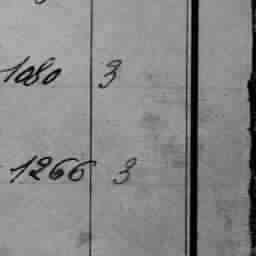 1080 3
1266 3